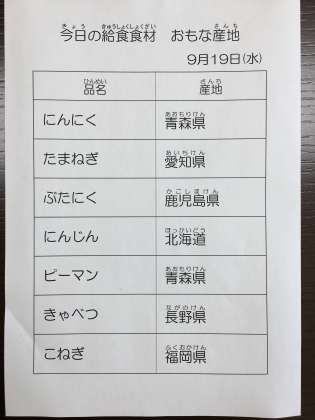 今日の給食食材　おもな産地
9月19日(水)
品名　産地
にんにく　青森県
たまねぎ　愛知県
ぶたにく　鹿児島県
にんじん　北海道
ピーマン　青森県
きゃべつ　長野県
こねぎ　福岡県